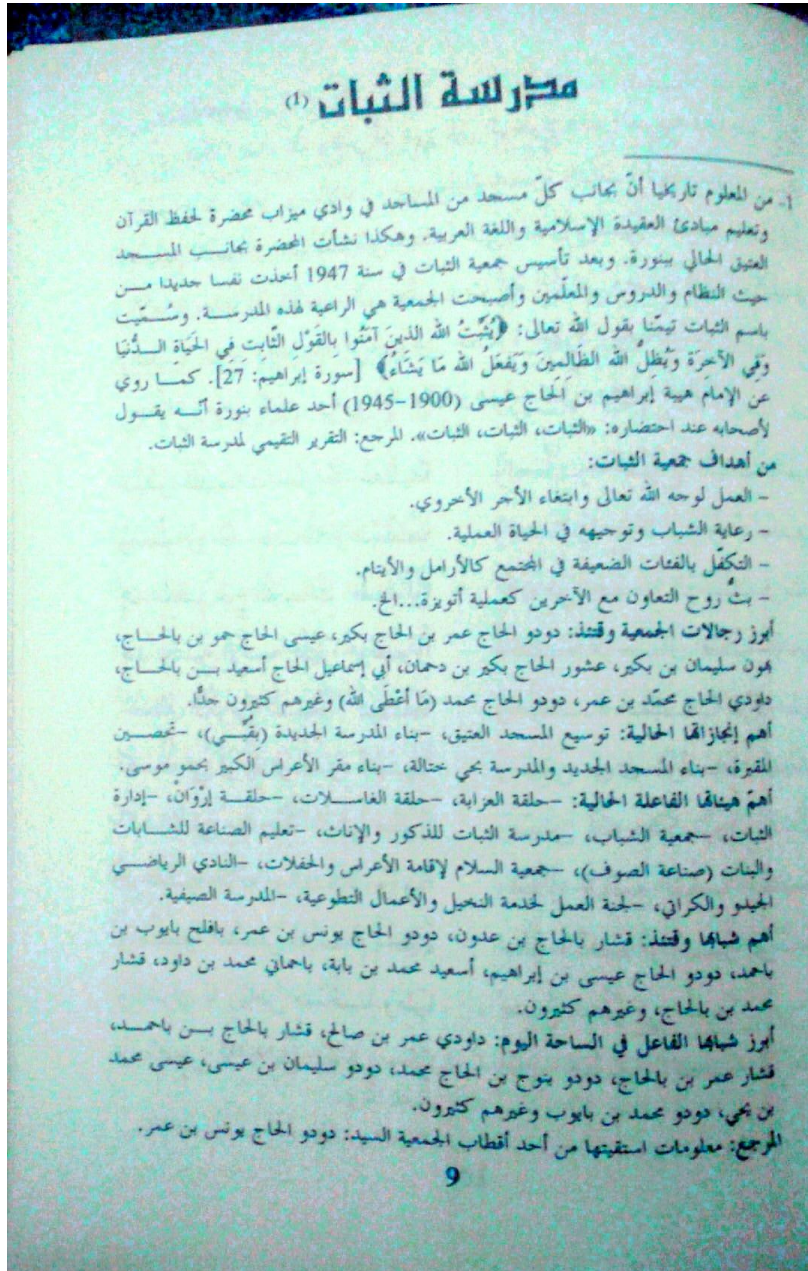 مدرسة الثبات (1)
1- من المعلوم تاريخيا أنّ بجانب كلّ مسجد من المساجد في وادي ميزاب محضرة لحفظ القرآن
وتعليم مبادئ العقيدة الإسلامية واللغة العربية. وهكذا نشأت المحضرة بجانب المسجد
العتيق الحالي ببنورة. وبعد تأسيس جمعية الثبات في سنة 1947 أخذت نفسا جديدا من
حيث النظام والدروس والمعلّمين وأصبحت الجمعية هي الراعية لهذه المدرسة. وسُمّيت
باسم الثبات تيمّنا بقول الله تعالى: ﴿يُثَبِّتُ الله الذينَ آمَنُوا بِالقَوْلِ الثّابِتِ فِي الحَيَاة الدُّنْيَا
وَفِي الآخِرَة وَيُظِلُّ الله الظَالِمينَ وَيَفعَلُ الله مَا يَشَاءُ﴾ [سورة إبراهيم: 27]. كما روي
عن الإمام هيبة إبراهيم بن الحاج عيسى (1900-1945) أحد علماء بنورة أنّه يقول
لأصحابه عند احتضاره: «الثبات، الثبات، الثبات». المرجع: التقرير التقيمي لمدرسة الثبات.
من أهداف جمعية الثبات:
- العمل لوجه الله تعالى وابتغاء الأجر الأخروي.
- رعاية الشباب وتوجيهه في الحياة العملية.
- التكفّل بالفئات الضعيفة في المجتمع كالأرامل والأيتام.
- بثُّ روح التعاون مع الآخرين كعملية أتويزة...الخ.
أبرز رجالات الجمعية وقتئذ: دودو الحاج عمر بن الحاج بكير، عيسى الحاج حمو بن بالحاج،
بهون سليمان بن بكير، عشور الحاج بكير بن دحمان، أبي إسماعيل الحاج أسعيد بن بالحاج،
داودي الحاج محمّد بن عمر، دودو الحاج محمد (مَا أعْطَى الله) وغيرهم كثيرون جدًّا.
أهم إنجازاتها الحالية: توسيع المسجد العتيق، -بناء المدرسة الجديدة (بِقُبِّي)، -تحصين
المقبرة، -بناء المسجد الجديد والمدرسة بحي ختالة، -بناء مقر الأعراس الكبير بحمو موسى.
أهمّ هيئاتها الفاعلة الحالية: -حلقة العزابة، -حلقة الغاسلات، -حلقة إرْوَانْ، -إدارة
الثبات، -جمعية الشباب، -مدرسة الثبات للذكور والإناث، -تعليم الصناعة للشابات
والبنات (صناعة الصوف)، -جمعية السلام لإقامة الأعراس والحفلات، -النادي الرياضي
الجيدو والكراتي، -لجنة العمل لخدمة النخيل والأعمال التطوعية، -المدرسة الصيفية.
أهم شبابها وقتئذ: قشار بالحاج بن عدون، دودو الحاج يونس بن عمر، بافلح بايوب بن
باحمد، دودو الحاج عيسى بن إبراهيم، أسعيد محمد بن بابة، باحماني محمد بن داود، قشار
محمد بن بالحاج، وغيرهم كثيرون.
أبرز شبابها الفاعل في الساحة اليوم: داودي عمر بن صالح، قشار بالحاج بن باحمد،
قشار عمر بن بالحاج، دودو بنوح بن الحاج محمد، دودو سليمان بن عيسى، عيسى محمد
بن يحي، دودو محمد بن بايوب وغيرهم كثيرون.
المرجع: معلومات استقيتها من أحد أقطاب الجمعية السيد: دودو الحاج يونس بن عمر.
9